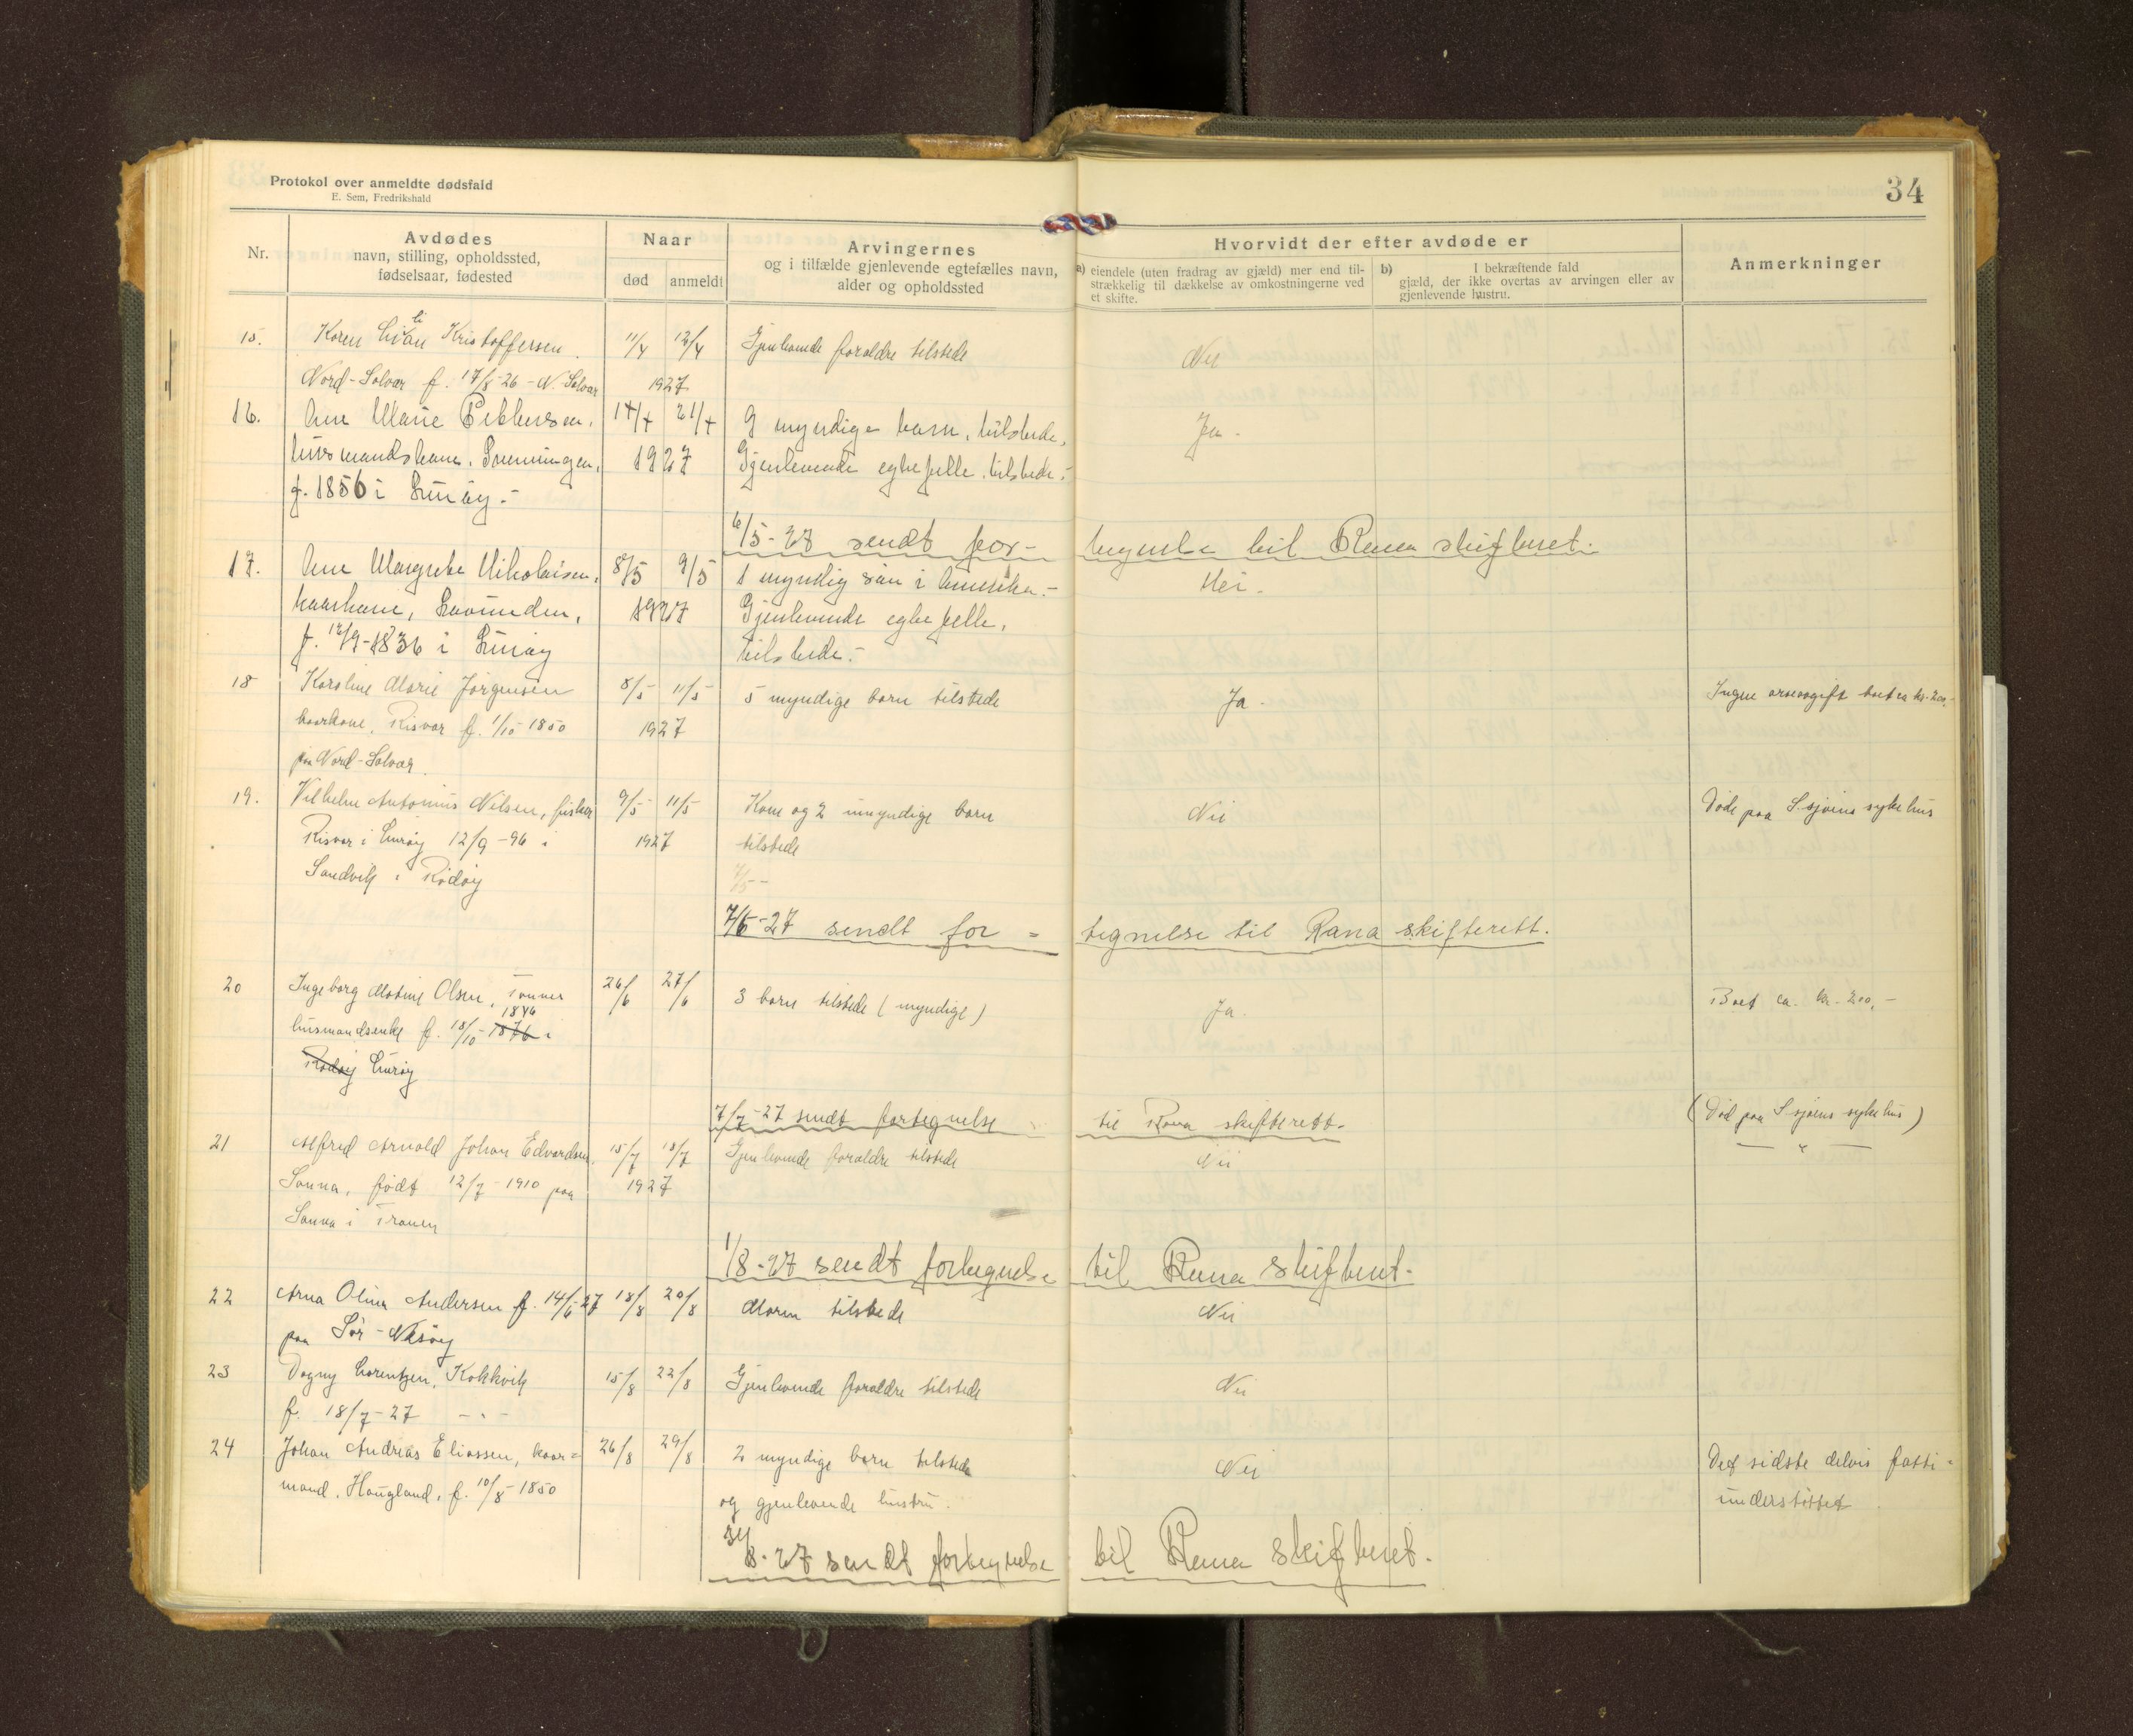 Protokol over anmeldte dødsfald
E. Sem, Fredrikshald
34
Nr.
Avdødes
navn, stilling, opholdssted,
fødselsaar, fødested
Naar
død anmeldt
Arvingernes
og i tilfælde gjenlevende egtefælles navn,
alder og opholdssted
Hvorvidt der efter avdøde er
a) eiendele (uten fradrag av gjæld) mer end til-
strækkelig til dækkelse av omkostningerne ved
et skifte.
b) I bekræftende fald
gjæld, der ikke overtas av arvingen eller av
gjenlevende hustru.
Anmerkninger
15. Karen Kristoffersen. 11/4 12/4 Gjenlevende foraldre tilstede Nei
Nord-Solvær f. 17/8-26 - N. Solvær 1927
16. Ane Marie Pettersen, 17/4 21/4 9 myndige barn, tilstede, Ja.
husmandskone, 1927 Gjenlevende egtefelle, tilstede.-
f. 1856 i Lurøy.-
6/5-27 sendt for- tegnelse til Rana skifteret.
17. Ane Margrete Nikolaisen, 8/5 9/5 1 myndig søn i Amerika.- Nei.
kaarkone, Lovunden, 1927 Gjenlevende egtefelle,
f. 12/9-1836 i Lurøy tilstede.-
18 Karoline Marie Jørgensen 8/5 11/5 5 myndige barn tilstede Ja. Ingen arveavgift boet ca kr. 200,-
kaarkone, Risvær f. 1/10-1850 1927
paa Nord-Solvær.
19. Vilhelm Antonius Nilsen, fisker 9/5 11/5 Kone og 2 umyndige barn Nei Døde paa S.sjøens sykehus
Risvær i Lurøy 12/9-96 i 1927 tilstede
Sandvik i Rødøy 7/5--
7/6-27 sendt for= tegnelse til Rana skifterett.
20 Ingeborg Martine Olsen, Tonnes 26/6 27/6 3 barn tilstede (myndige) Ja. Boet ca. kr. 200,-
1846
husmandsenke f. 18/10-1876 i
Rødøy Lurøy
7/7-27 sendt fortegnelse til Rana skifterett. (Død paa S.sjøens sykehus)
21 Alfred Arnold Johan Edvardsen. 15/7 18/7 Gjenlevende foraldre tilstede Nei — " —
Sanna, født 12/7-1910 paa 1927
Sanna i Træna
1/8-27 sendt fortegnelse til Rana skifteret.
22 Arna Olina Andersen f. 14/6-27 18/8 20/8 Moren tilstede Nei
paa Sør-Nesøy
23 Dagny Lorentzen, Kokkvik 15/8 22/8 Gjenlevende foraldre tilstede Nei
f. 18/7-27 - " -
24 Johan Andreas Eliassen, kaar= 26/8 29/8 2 myndige barn tilstede Nei Det sidste delvis fatti=
mand, Haugland, f. 10/8-1850 og gjenlevende hustru. understøttet.
31/8-27 sendt fortegnelse til Rana skifteret.